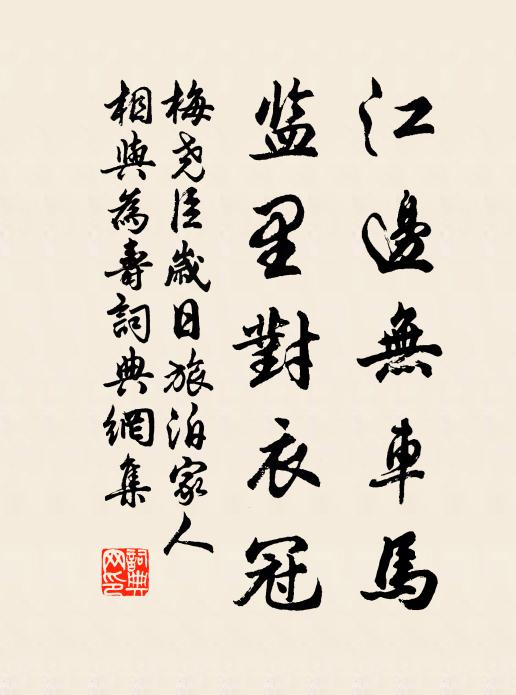 江邊無車馬
监里對衣冠
梅尧臣歲日旅泊家人
相與為壽詞典網集
詞典網印